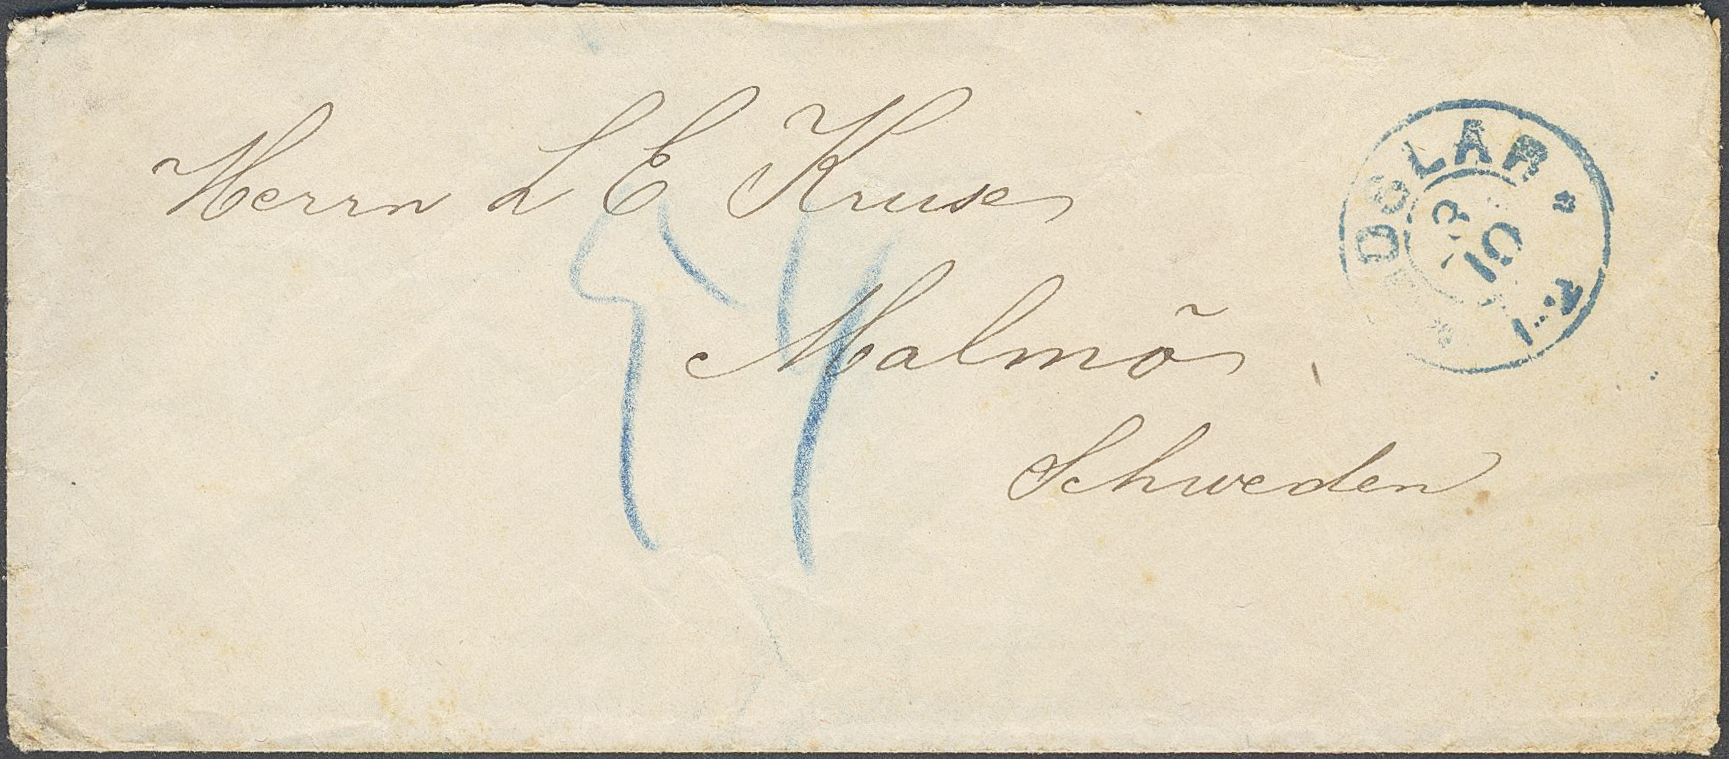 Herrn L E Kruse
Malmö
Schweden
GOSLAR